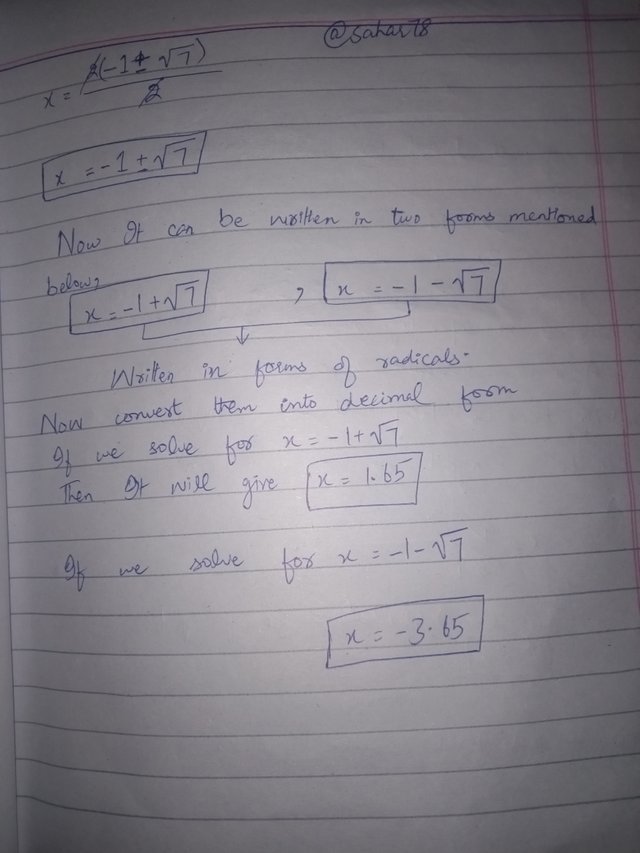 @sahar78
x = 2(-1 ± √7) / 2
x = -1 ± √7
Now It can be written in two forms mentioned
below,
x = -1 + √7 , x = -1 - √7
Written in forms of radicals.
Now convert them into decimal form
If we solve for x = -1 + √7
Then It will give x = 1.65
If we solve for x = -1 - √7
x = -3.65